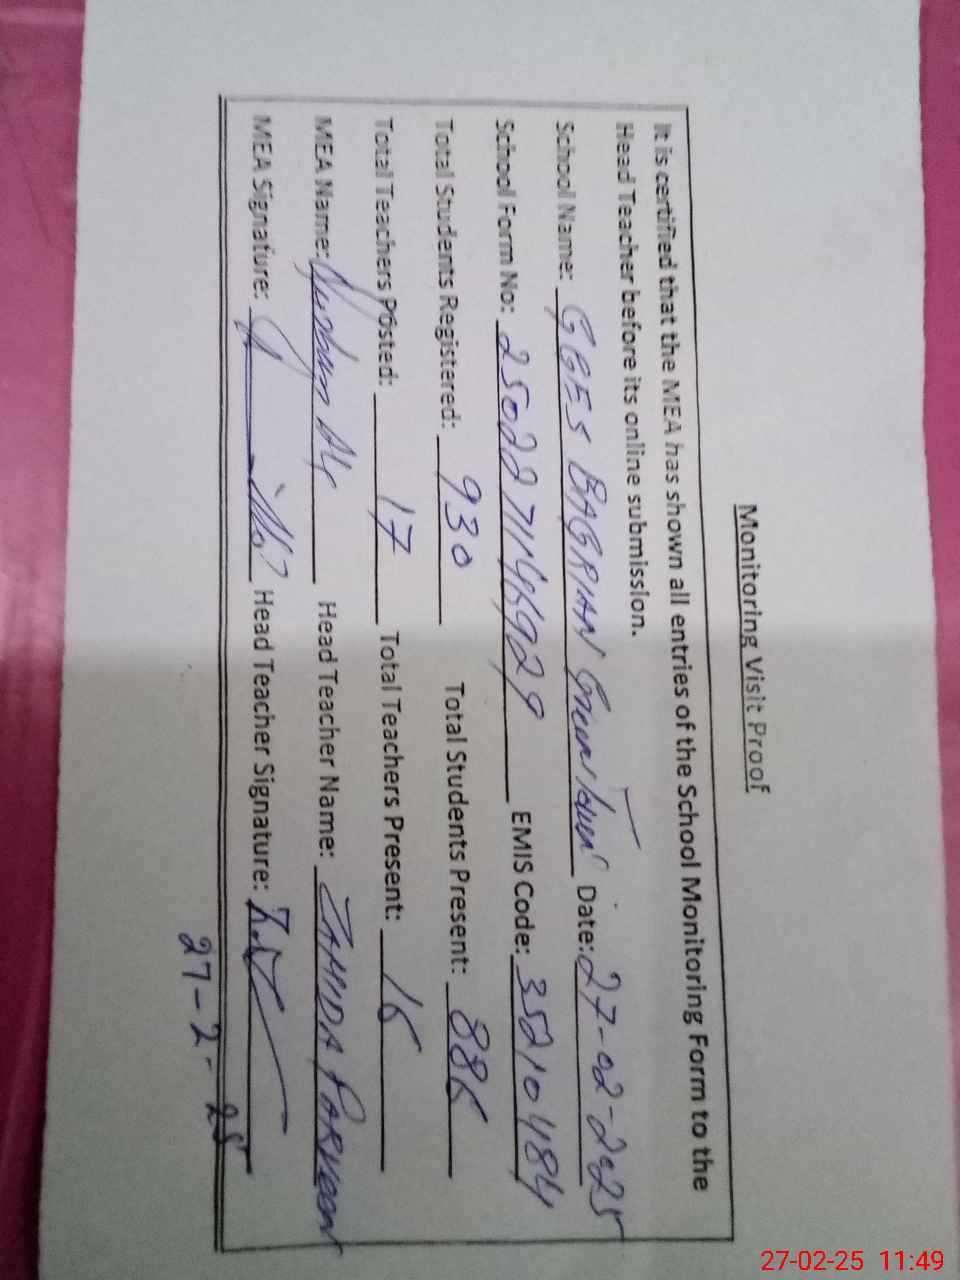 Monitoring Visit Proof
It is certified that the MEA has shown all entries of the School Monitoring Form to the
Head Teacher before its online submission.
School Name: GGES BAGRIAN Green Town Date: 27-02-2025
School Form No: EMIS Code: 35210484
Total Students Registered: 930 Total Students Present: 886
Total Teachers Posted: 17 Total Teachers Present: 16
MEA Name: Head Teacher Name: ZAHIDA PARVEEN
MEA Signature: Head Teacher Signature:
27-2-25
27-02-25 11:49